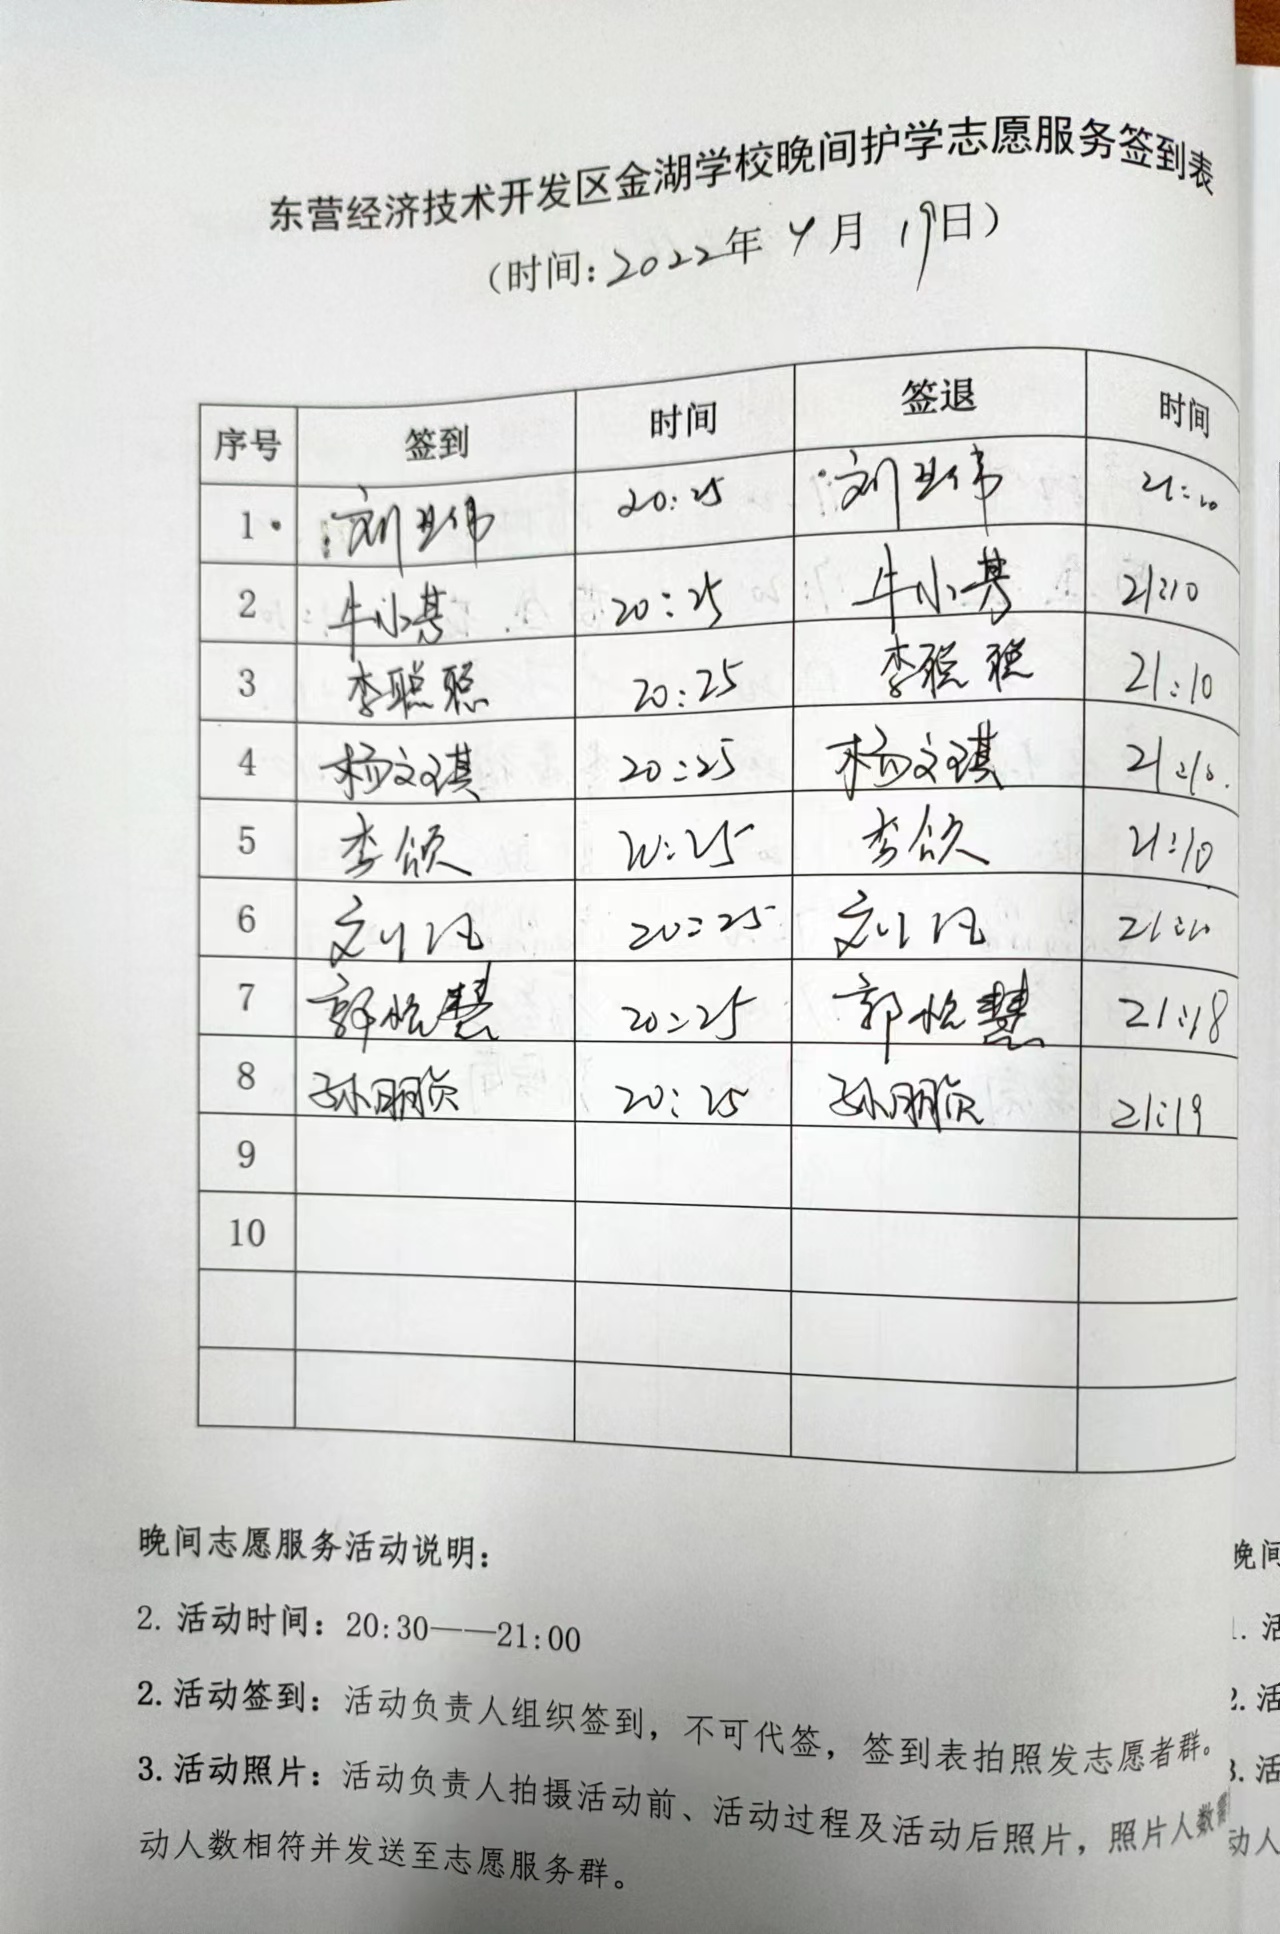 东营经济技术开发区金湖学校晚间护学志愿服务签到表
（时间：2022年4月19日）
序号 签到 时间 签退 时间
1 刘卫伟 20:25 刘卫伟
2 牛小 20:25 牛小 21:10
3 李聪聪 20:25 李聪聪 21:10
4 杨文琪 20:25 杨文琪 21:10
5 李颂 20:25 李颂 21:10
6 刘凡 20:25 刘凡 21:10
7 郭悦慧 20:25 郭悦慧 21:18
8 孙朋贞 20:25 孙朋贞 21:19
9
10
晚间志愿服务活动说明：
2. 活动时间：20:30——21:00
2. 活动签到：活动负责人组织签到，不可代签，签到表拍照发志愿者群。
3. 活动照片：活动负责人拍摄活动前、活动过程及活动后照片，照片人数需
动人数相符并发送至志愿服务群。
晚间
1. 活
2. 活
3. 活
动人